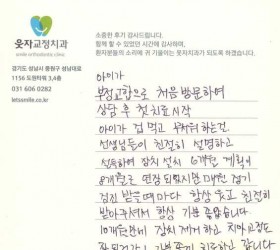 웃자교정치과
smile orthodontic clinic
경기도 성남시 중원구 성남대로
1156 도원타워 3,4층
031 606 0282
letssmile.co.kr
소중한 후기 감사드립니다.
함께 할 수 있었던 시간에 감사하며,
환자분들의 소리에 귀 기울이는 웃자치과가 되도록 하겠습니다.
아이가
부정교합으로 처음 방문하여
상담 후 첫 치료 시작
아이가 겁 먹고 무서워 하는걸
선생님들이 친절히 설명하고
장치 설치 6개월 계획이
8개월로 연장 되었지만 매번 정기
검진 받을때마다 항상 웃고 친절히
받아주셔서 항상 기분 좋았습니다
10개월만에 장치 제거 하고 치아교정도
기분 좋게 치료하고 갑니다